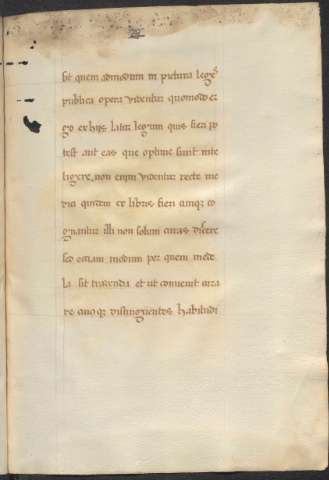 sit quem admodum in pictura leges
publica opera videntur quomodo er
go ex hijs lator legum quis fieri po
test aut eas que optime sunt inte
ligere. non enim videntur recte me
dici quidem ex libris fieri cumque co
gnantur illi non solum curas dicere
sed etiam modum per quem mede
la sit tradenda et ut convenit cura
re quoque distinguentes habitudi